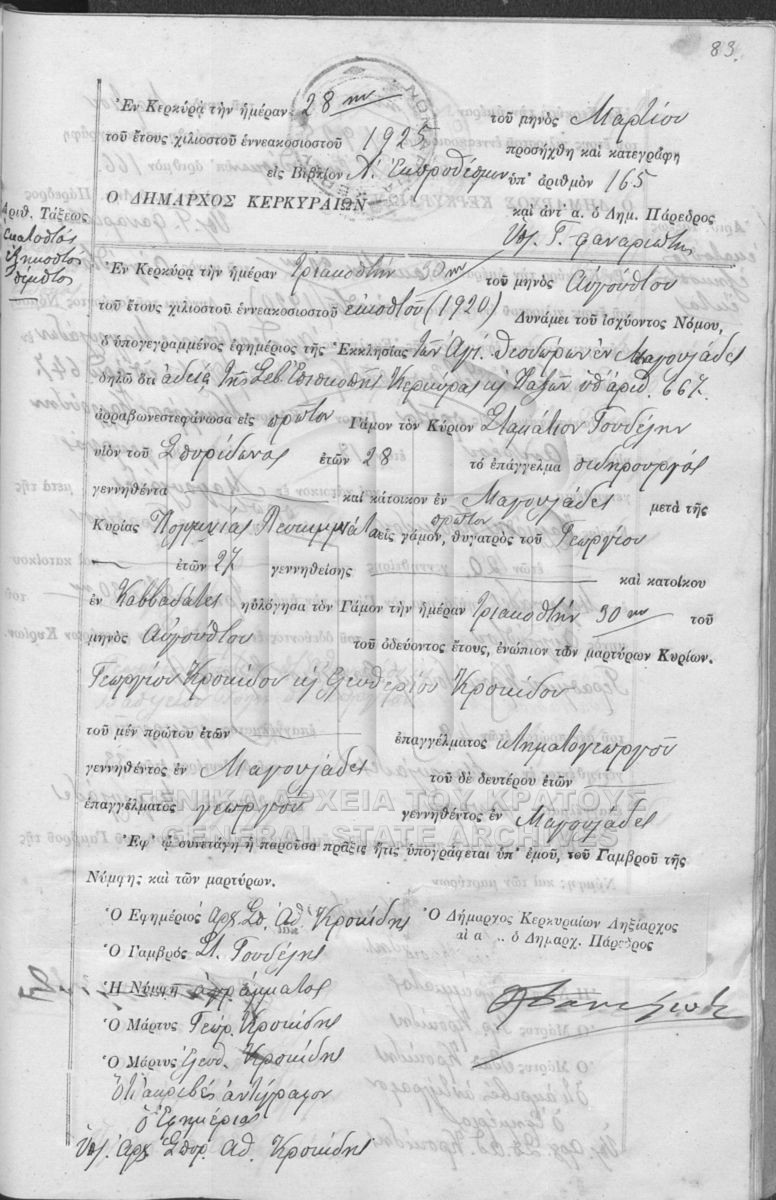 83.
Ἐν Κερκύρᾳ τὴν ἡμέραν 28ην τοῦ μηνὸς Μαρτίου
τοῦ ἔτους χιλιοστοῦ ἐννεακοσιοστοῦ 1925 προσήχθη καὶ κατεγράφη
εἰς Βιβλίον Λ. Ἐκπροθέσμων ὑπ' ἀριθμὸν 165
Ο ΔΗΜΑΡΧΟΣ ΚΕΡΚΥΡΑΙΩΝ
καὶ ἀντ' α. ὁ Δημ. Πάρεδρος
Ἀριθ. Τάξεως
Ὑπ. Γ. Φαναριώτης
Ἑκατοστὸς
ἑξηκοστὸς
πέμπτος
Ἐν Κερκύρᾳ τὴν ἡμέραν τριακοστὴν 30ην τοῦ μηνὸς Αὐγούστου
τοῦ ἔτους χιλιοστοῦ ἐννεακοσιοστοῦ εἰκοστοῦ (1920) Δυνάμει τοῦ ἰσχύοντος Νόμου,
ὁ ὑπογεγραμμένος ἐφημέριος τῆς Ἐκκλησίας τῶν Ἁγ. Θεοδώρων ἐν Μαγουλάδες
δηλῶ ὅτι ἀδείᾳ τῆς Σεβ. Ἐπισκοπῆς Κερκύρας κ Παξῶν ὑπ' ἀριθ. 667.
ἀρραβωνεστεφάνωσα εἰς πρῶτον Γάμον τὸν Κύριον Σταμάτιον Γουδέλην
υἱὸν τοῦ Σπυρίδωνος ἐτῶν 28 τὸ ἐπάγγελμα σιδηρουργός
γεννηθέντα καὶ κάτοικον ἐν Μαγουλάδες μετὰ τῆς
Κυρίας Πολυμνίας εἰς πρῶτον γάμον, θυγατρὸς τοῦ Γεωργίου
ἐτῶν 27 γεννηθείσης καὶ κατοίκου
ἐν Καββαδάδες ηὐλόγησα τὸν Γάμον τὴν ἡμέραν τριακοστὴν 30ην τοῦ
μηνὸς Αὐγούστου τοῦ ὁδεύοντος ἔτους, ἐνώπιον τῶν μαρτύρων Κυρίων.
Γεωργίου Κροκίδου κ Ἐλευθερίου Κροκίδου
τοῦ μὲν πρώτου ἐτῶν ἐπαγγέλματος κτηματογεωργοῦ
γεννηθέντος ἐν Μαγουλάδες τοῦ δὲ δευτέρου ἐτῶν
ἐπαγγέλματος γεωργοῦ γεννηθέντος ἐν Μαγουλάδες
ΓΕΝΙΚΑ ΑΡΧΕΙΑ ΤΟΥ ΚΡΑΤΟΥΣ
GENERAL STATE ARCHIVES
Ἐφ' ᾧ συνετάγη ἡ παροῦσα πρᾶξις ἥτις ὑπογράφεται ὑπ' ἐμοῦ, τοῦ Γαμβροῦ τῆς
Νύμφης καὶ τῶν μαρτύρων.
Ὁ Ἐφημέριος Ἀρχ. Σπ. Ἀθ. Κροκίδης
Ὁ Δήμαρχος Κερκυραίων Ληξίαρχος
ὁ Δημαρχ. Πάρεδρος
Ὁ Γαμβρὸς Στ. Γουδέλης
Ἡ Νύμφη ἀγράμματος
Ὁ Μάρτυς Γεωρ. Κροκίδης
Ὁ Μάρτυς Ἐλευθ. Κροκίδης
Ὅτι ἀκριβὲς ἀντίγραφον
Ὁ Ἐφημέριος
Ὑπ. Ἀρχ. Σπυρ. Ἀθ. Κροκίδης